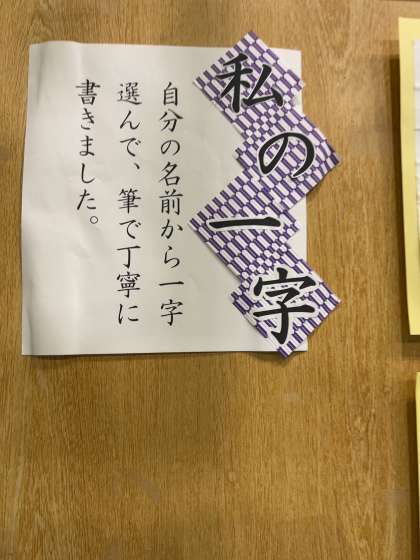 私の一字
自分の名前から一字
選んで、筆で丁寧に
書きました。